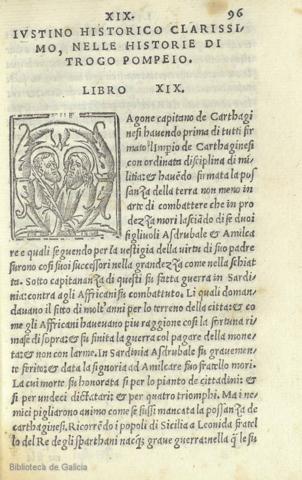 XIX. 96
IVSTINO HISTORICO CLARISSI
MO, NELLE HISTORIE DI
TROGO POMPEIO.
LIBRO XIX.
Agone capitano de Carthagi
nesi hauendo prima di tutti fir
mato l'Impio de Carthaginesi
con ordinata disciplina di mi-
litia: & hauēdo firmata la pos
sanza della terra non meno in
arte di combattere che in pro
dezza mori lasciādo di se duoi
figliuoli Asdrubale & Amilca
re e quali seguendo per la vestigia della virtu di suo padre
furono cosi suoi successori nella grandezza come nella schiat
ta. Sotto capitananza di questi fu fatta guerra in Sardi
nia: contra agli Affricani fu combattuto. Li quali doman-
dauano il fitto di molt'anni per lo terreno della citta: & co
me gli Affricani haueuano piu raggione cosi la fortuna ri-
mase di sopra: & fu finita la guerra col pagare della mone
ta: & non con larme. In Sardinia Asdrubale fu grauemen-
te ferito: & data la signoria ad Amilcare suo fratello mori.
La cui morte fu honorata si per lo pianto de cittadini: &
si per undeci dictature: & per quatro triomphi. Ma i ne-
mici pigliarono animo come se fussi mancata la possanza de
carthaginesi. Ricorrēdo i popoli di Sicilia a Leonida fratel
lo del Re degli sparthani nacque graue guerra: nella qle fu
Biblioteca de Galicia